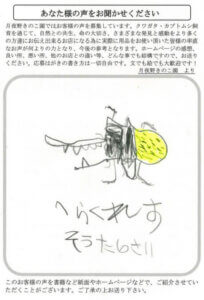 あなた様の声をお聞かせください
月夜野きのこ園ではお客様の声を募集しています。クワガタ・カブトムシ飼
育を通じて、自然との共生、命の大切さ、さまざまな発見と感動をより多く
の方達にお伝え出来るお店になる為に実際に用品をお使い頂いた皆様の率直
なお声が何よりの力となり、今後の参考となります。ホームページの感想、
良い所、悪い所、他のお店との違い等、どんな事でも結構ですので、お送り
ください。応募はがきの書き方は一切自由です。文でも絵でも大歓迎です！
月夜野きのこ園 より
へらくれす
そうた6さい
このお客様の声を書籍など紙面やホームページなどで、ご紹介させていた
だくことがございます。ご了承の上お送り下さい。